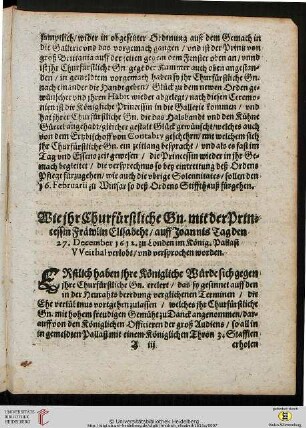 sämptlich/ wider in obgesetzter Ordnung auß dem Gemach in
die Gallerie vnd das vorgemach gangen / vnd ist der Prinz von
groß Brittania auff der seiten gegen den Fenster oben an / vnnd
ist ihr Churfürstliche Gn. gegt der Kammer auch oben angestan-
den / in gemeldtem vorgemach haben so ihr Churfürstliche Gn.
nach einander die Händt geben / Glück zu dem newen Orden ge-
wünschet vnd ihren Habit wieder abgelegt / nach diesen Ceremo-
nien ist die Königliche Princessin in die Gallerie kommen / vnd
hat ihrer Churfürstliche Gn. die das Halsbandt vnd den Kühne
Gürtel angehabt gleicher gestalt Glück gewünschet / welchs auch
von dem Ertzbischoff von Contarby geschehen / mit welchem sich
ihr Churfürstliche Gn. ein zeitlang besprachet / vnd als es fast im
Tag vnd Essenszeit gewesen / die Princessin wieder in ihr Ge-
mach begleitet / die versprechnuß so bey eintrettung deß Ordens
Pflegt fürzugehen / wie auch die vbrige Solenniteten / sollen den
16. Februarij zu Wintsor so deß Ordens Stiffthauß fürgehen.
Wie ihr Churfürstliche Gn. mit der Prin-
cessin Fräwlin Elisabethe / auff Joannis Tag den
27. December 1612. zu Londen im König. Pallast
VVeithal verlobt / vnd versprochen worden.
ERstlich haben ihre Königliche Würde sich gegen
ihre Churfürstliche Gn. erclert / das so gesinnet auff den
in der Heuraths beredung verglichenen Terminen / die
Ehe vertüttnus vorgehen zulassen / welches ihr Churfürstliche
Gn. mit hohem freudigen Gemüht zu Danck angenommen / dar-
auff von den Königlichen Officiren der groß Audiens / so all in
in gemelten Pallast mit einem Königlichen Thron 3. Stafflen
J iij
erhoben
UNIVERSITÄTS-
BIBLIOTHEK
HEIDELBERG